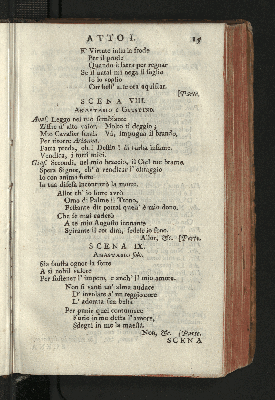 ATTO I. 15
E' Virtute insin la frode
Per il posto
Quando è fatta per regnar
Se il natal mi nega il soglio
Io lo voglio
Con bell' arte ora aquistar.
[Parte.
SCENA VIII.
ANASTASIO e GIUSTINO.
Anas. Leggo nel tuo sembiante
Zifre d' alto valor. Molto ti deggio;
Mio Cavalier sarai. Và, impugna il brando,
Per vincere Arianna.
Fatta preda, oh! Destin! di turba infame.
Vendica, i torti miei.
Giust. Secondi, nel mio braccio, il Ciel tue brame.
Spera Signor, ch' a vendicar l' oltraggio
Io con anima forte
In tua difesa incontrerò la morte.
Allor ch' io forte avrò
Orno di Palme il Trono,
Pessante dir potrai quest' è mio dono.
Che se mai caderò
A te mio Augusto innante
Spirante il cor dirà, fedele io sono.
Allor, &c. [Parte.
SCENA IX.
ANASTASIO solo.
Sia fausta ognor la sorte
A sì nobil valore
Per sostener l' impero, e anch' il mio amore.
Non si vanti un' alma audace
D' involare a' un reggio core
L' adorata sua beltà
Per punir quel contumace
Furie in me desta l' amore,
Sdegni in me la maestà.
Non, &c. [Parte.
SCENA